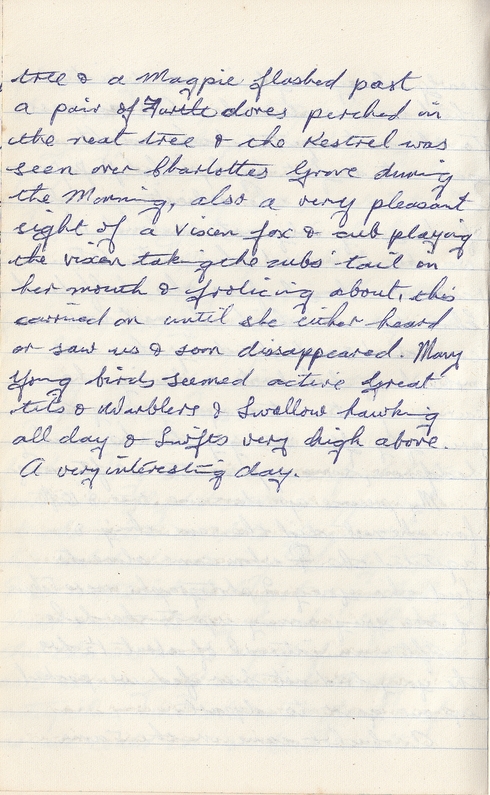 tree & a Magpie flashed past
a pair of Turtle doves perched in
the next tree & the Kestrel was
seen over Charlottes Grove during
the Morning, also a very pleasant
sight of a vixen fox & cub playing
the vixen taking the cubs' tail in
her mouth & frolicing about, this
carried on until she either heard
or saw us & soon dissappeared. Many
young birds seemed active Great
tits & Warblers & Swallow hawking
all day & Swifts very high above.
A very interesting day.